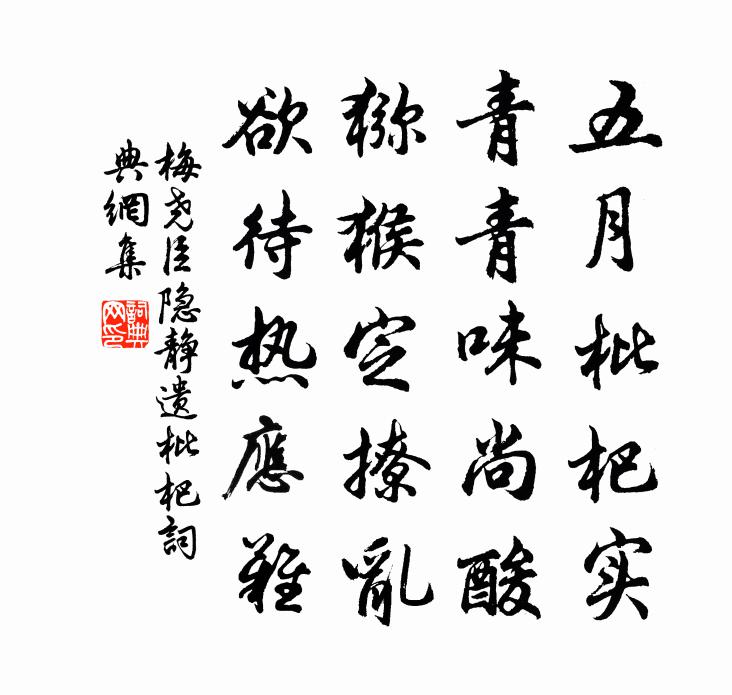 五月枇杷实
青青味尚酸
猕猴定撩亂
欲待热應難
梅尧臣隐静遗枇杷詞
典網集
詞典
网印